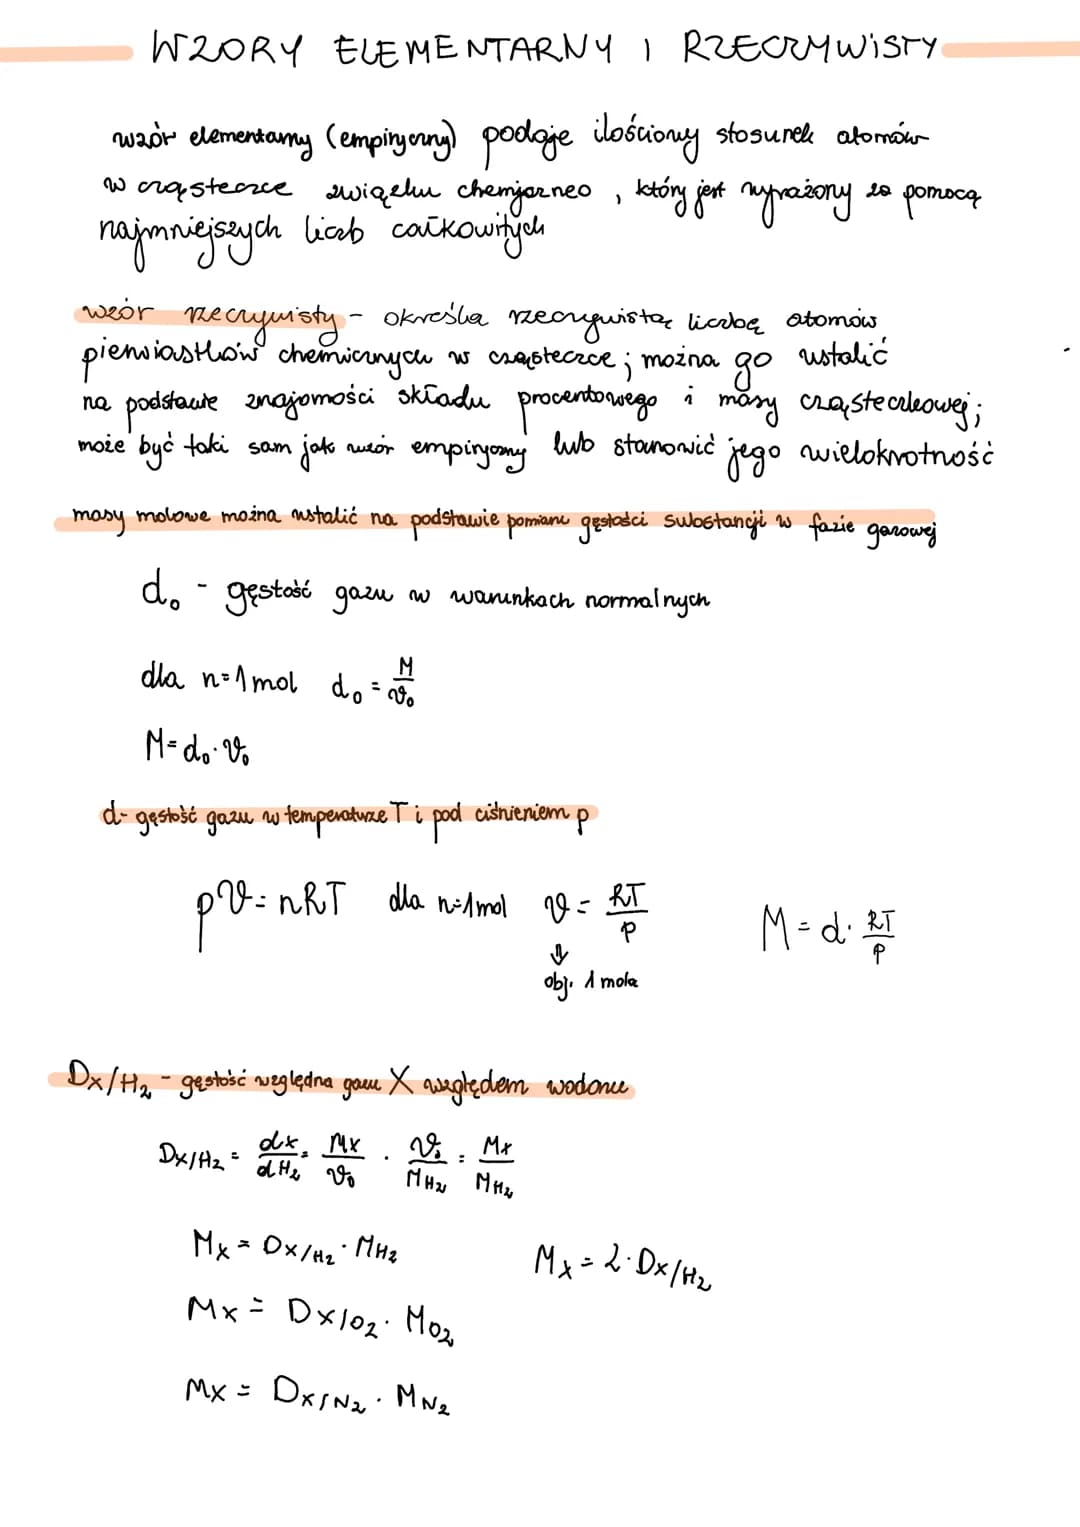 WZORY ELEMENTARNY I RZECZYWISTY
wzór elementarny (empiryczny) podaje ilościowy stosunek atomów
w cząsteczce związku chemiczneo, który jest wyrażony za pomocą
najmniejszych liczb całkowitych
wzór rzeczywisty - określa rzeczywistą liczbę atomów
pierwiastków chemicznych w cząsteczce; można go ustalić
na podstawie znajomości składu procentowego i masy cząsteczkowej;
może być taki sam jak wzór empiryczny lub stanowić jego wielokrotność
masy molowe można ustalić na podstawie pomiaru gęstości substancji w fazie gazowej
d₀ - gęstość gazu w warunkach normalnych
dla n=1mol d₀ = M/V₀
M=d₀·V₀
d- gęstość gazu w temperaturze T i pod ciśnieniem p
pV=nRT dla n=1mol V = RT/p M = d· RT/p
⇓
obj. 1 mola
Dx/H₂ - gęstość względna gazu X względem wodoru
Dx/H₂ = dx/dH₂ = Mx/V₀ · V₀/MH₂ = Mx/MH₂
Mx = Dx/H₂ · MH₂ Mx = 2·Dx/H₂
Mx = Dx/O₂ · MO₂
Mx = Dx/N₂ · MN₂